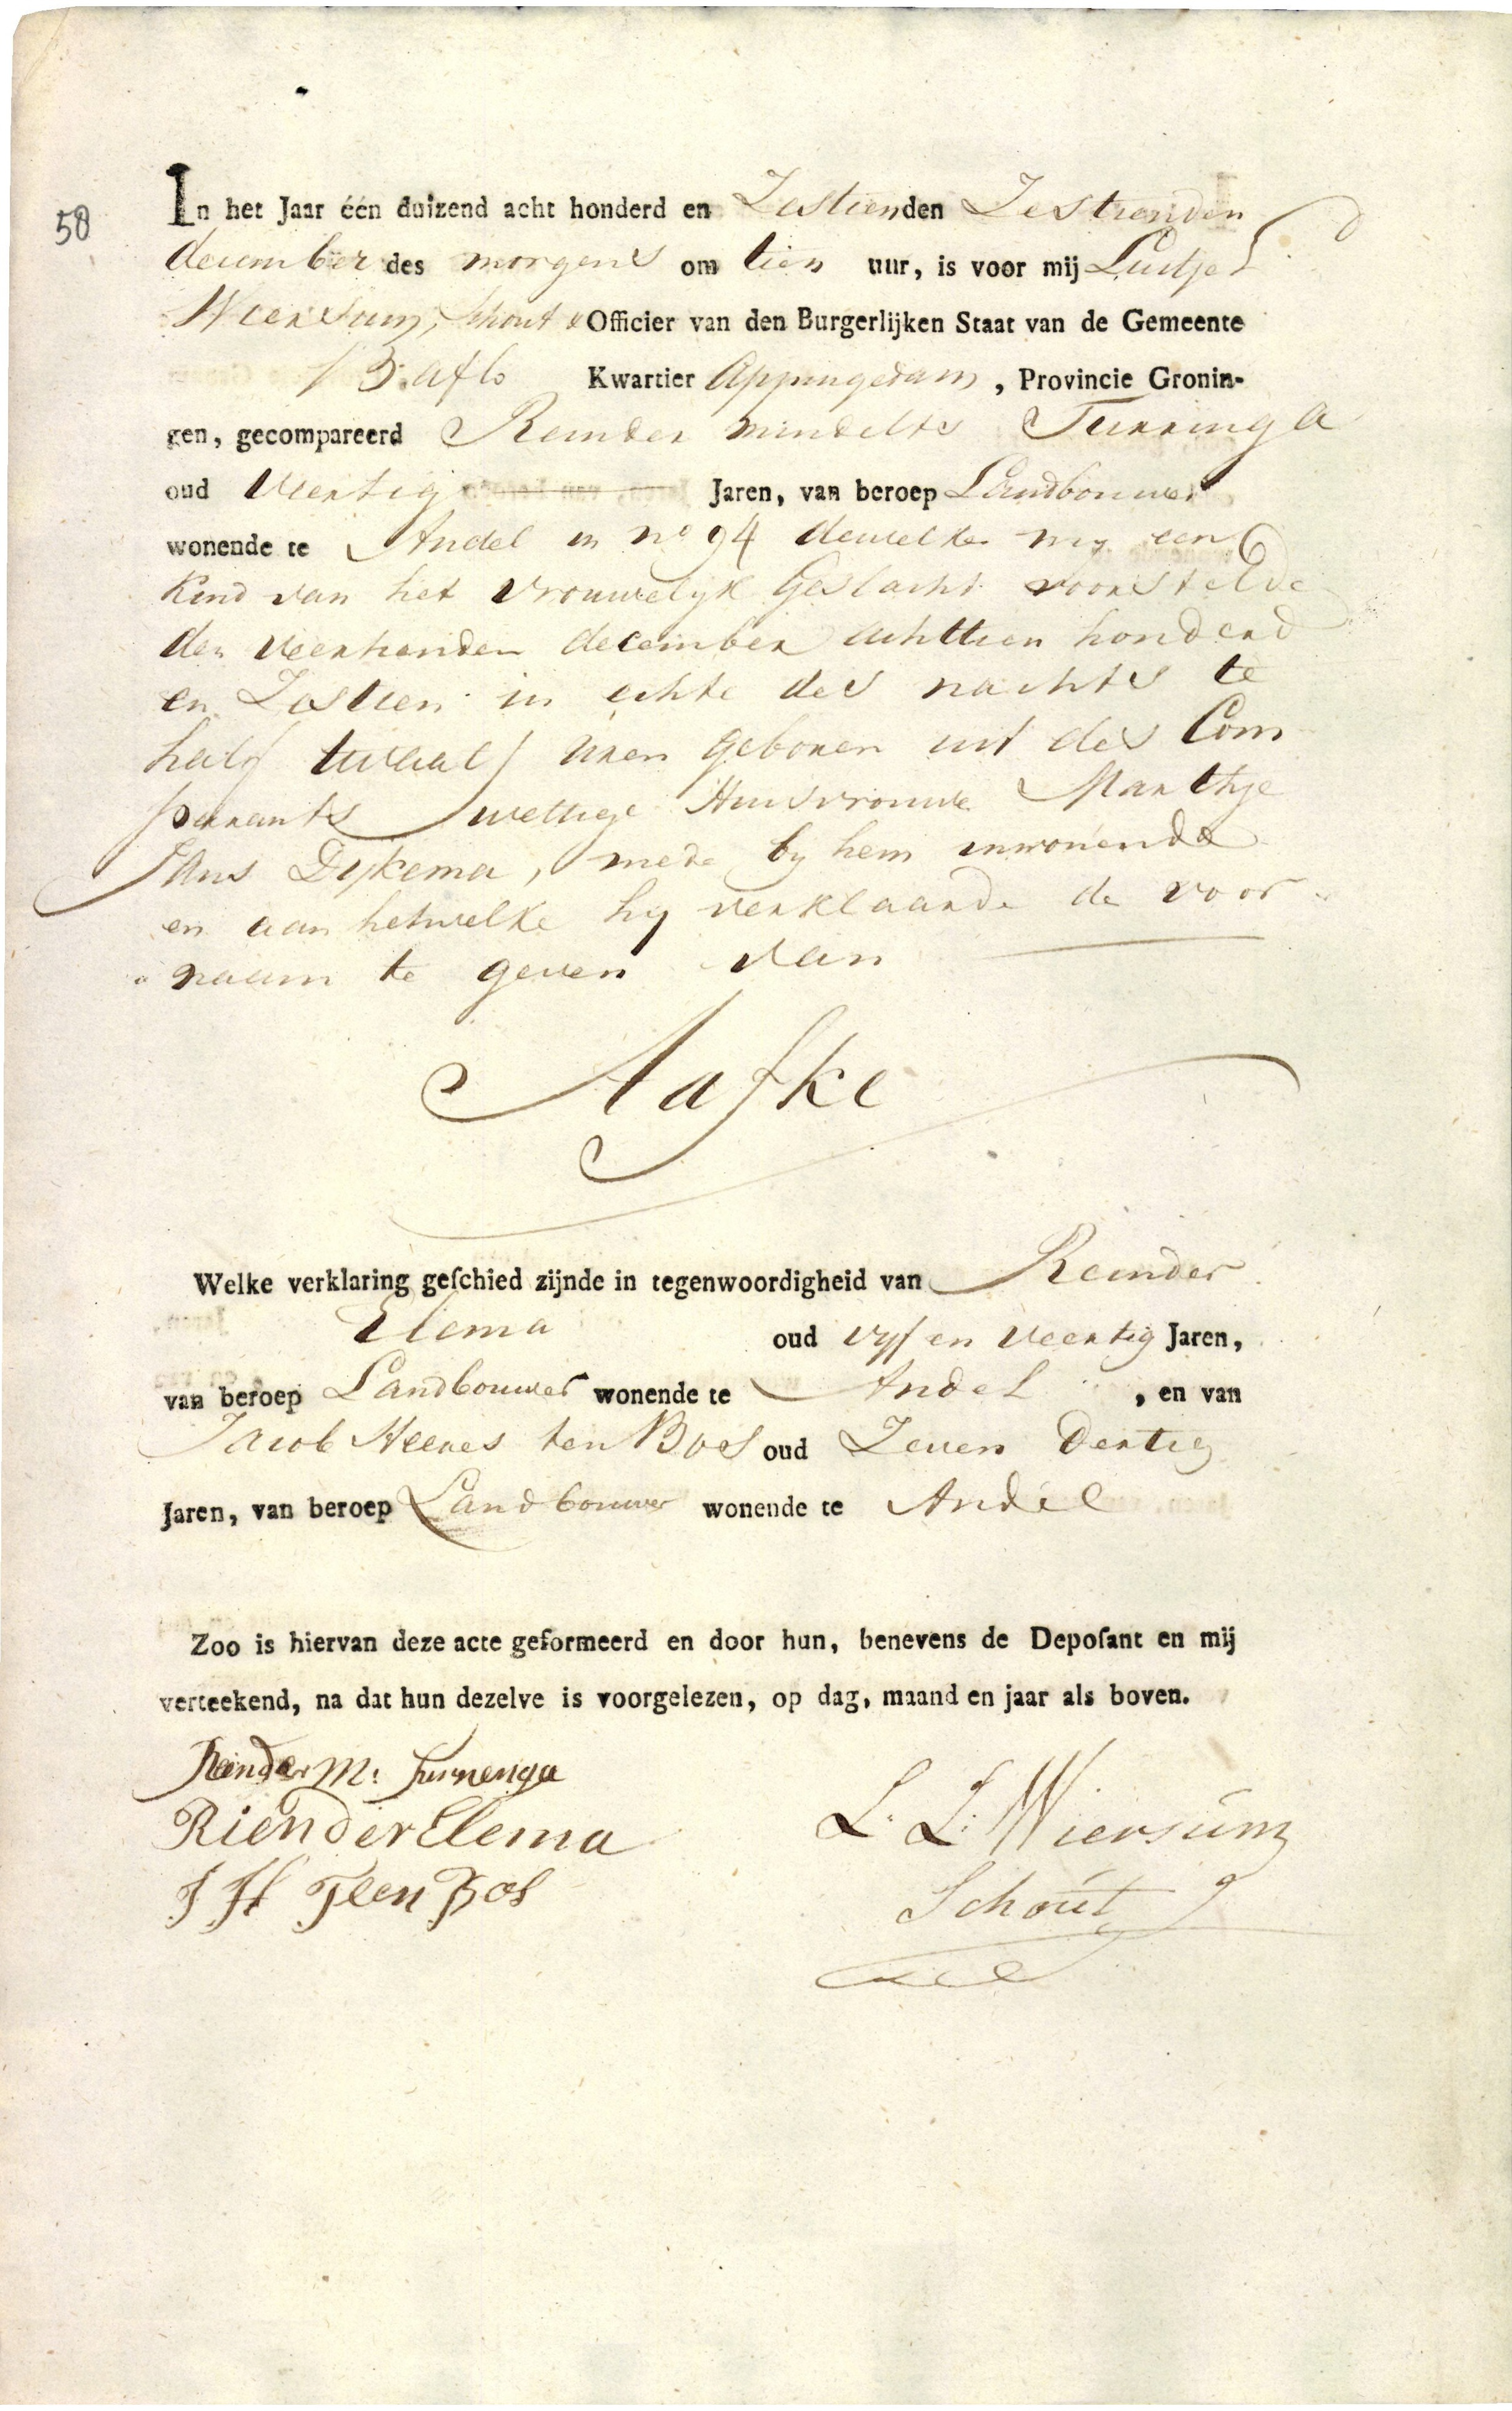 58
In het Jaar één duizend acht honderd en Zestienden Zestienden
december des morgens om tien uur, is voor mij Luitje L
Wiersum, Schout & Officier van den Burgerlijken Staat van de Gemeente
Baflo Kwartier Appingedam, Provincie Gronin-
gen, gecompareerd Reinder mendelts Turninga
oud Veertig Jaren, van beroep Landbouwer
wonende te Andel in no 94 dewelke my een
Kind van het Vrouwelyk Geslacht voorstelde
den Veertienden december achttien honderd
en Zestien in echte des nachts te
half twaalf uren geboren uit des Com
parants wettige Huisvrouwe Marthje
Jans Dykema, mede by hem inwonende
en aan hetwelke hy verklaarde de voor
naam te geven van
Aafke
Welke verklaring geſchied zijnde in tegenwoordigheid van Reinder
Elema oud vyf en Veertig Jaren,
van beroep Landbouwer wonende te Andel, en van
Jacob Heeres ten Bos oud Zeven Dertig
Jaren, van beroep Landbouwer wonende te Andel
Zoo is hiervan deze acte geformeerd en door hun, benevens de Depoſant en mij
verteekend, na dat hun dezelve is voorgelezen, op dag, maand en jaar als boven.
Reinder M: Turnenga
Riender Elema
J H Teen Bos
L: L: Wiersum
Schout